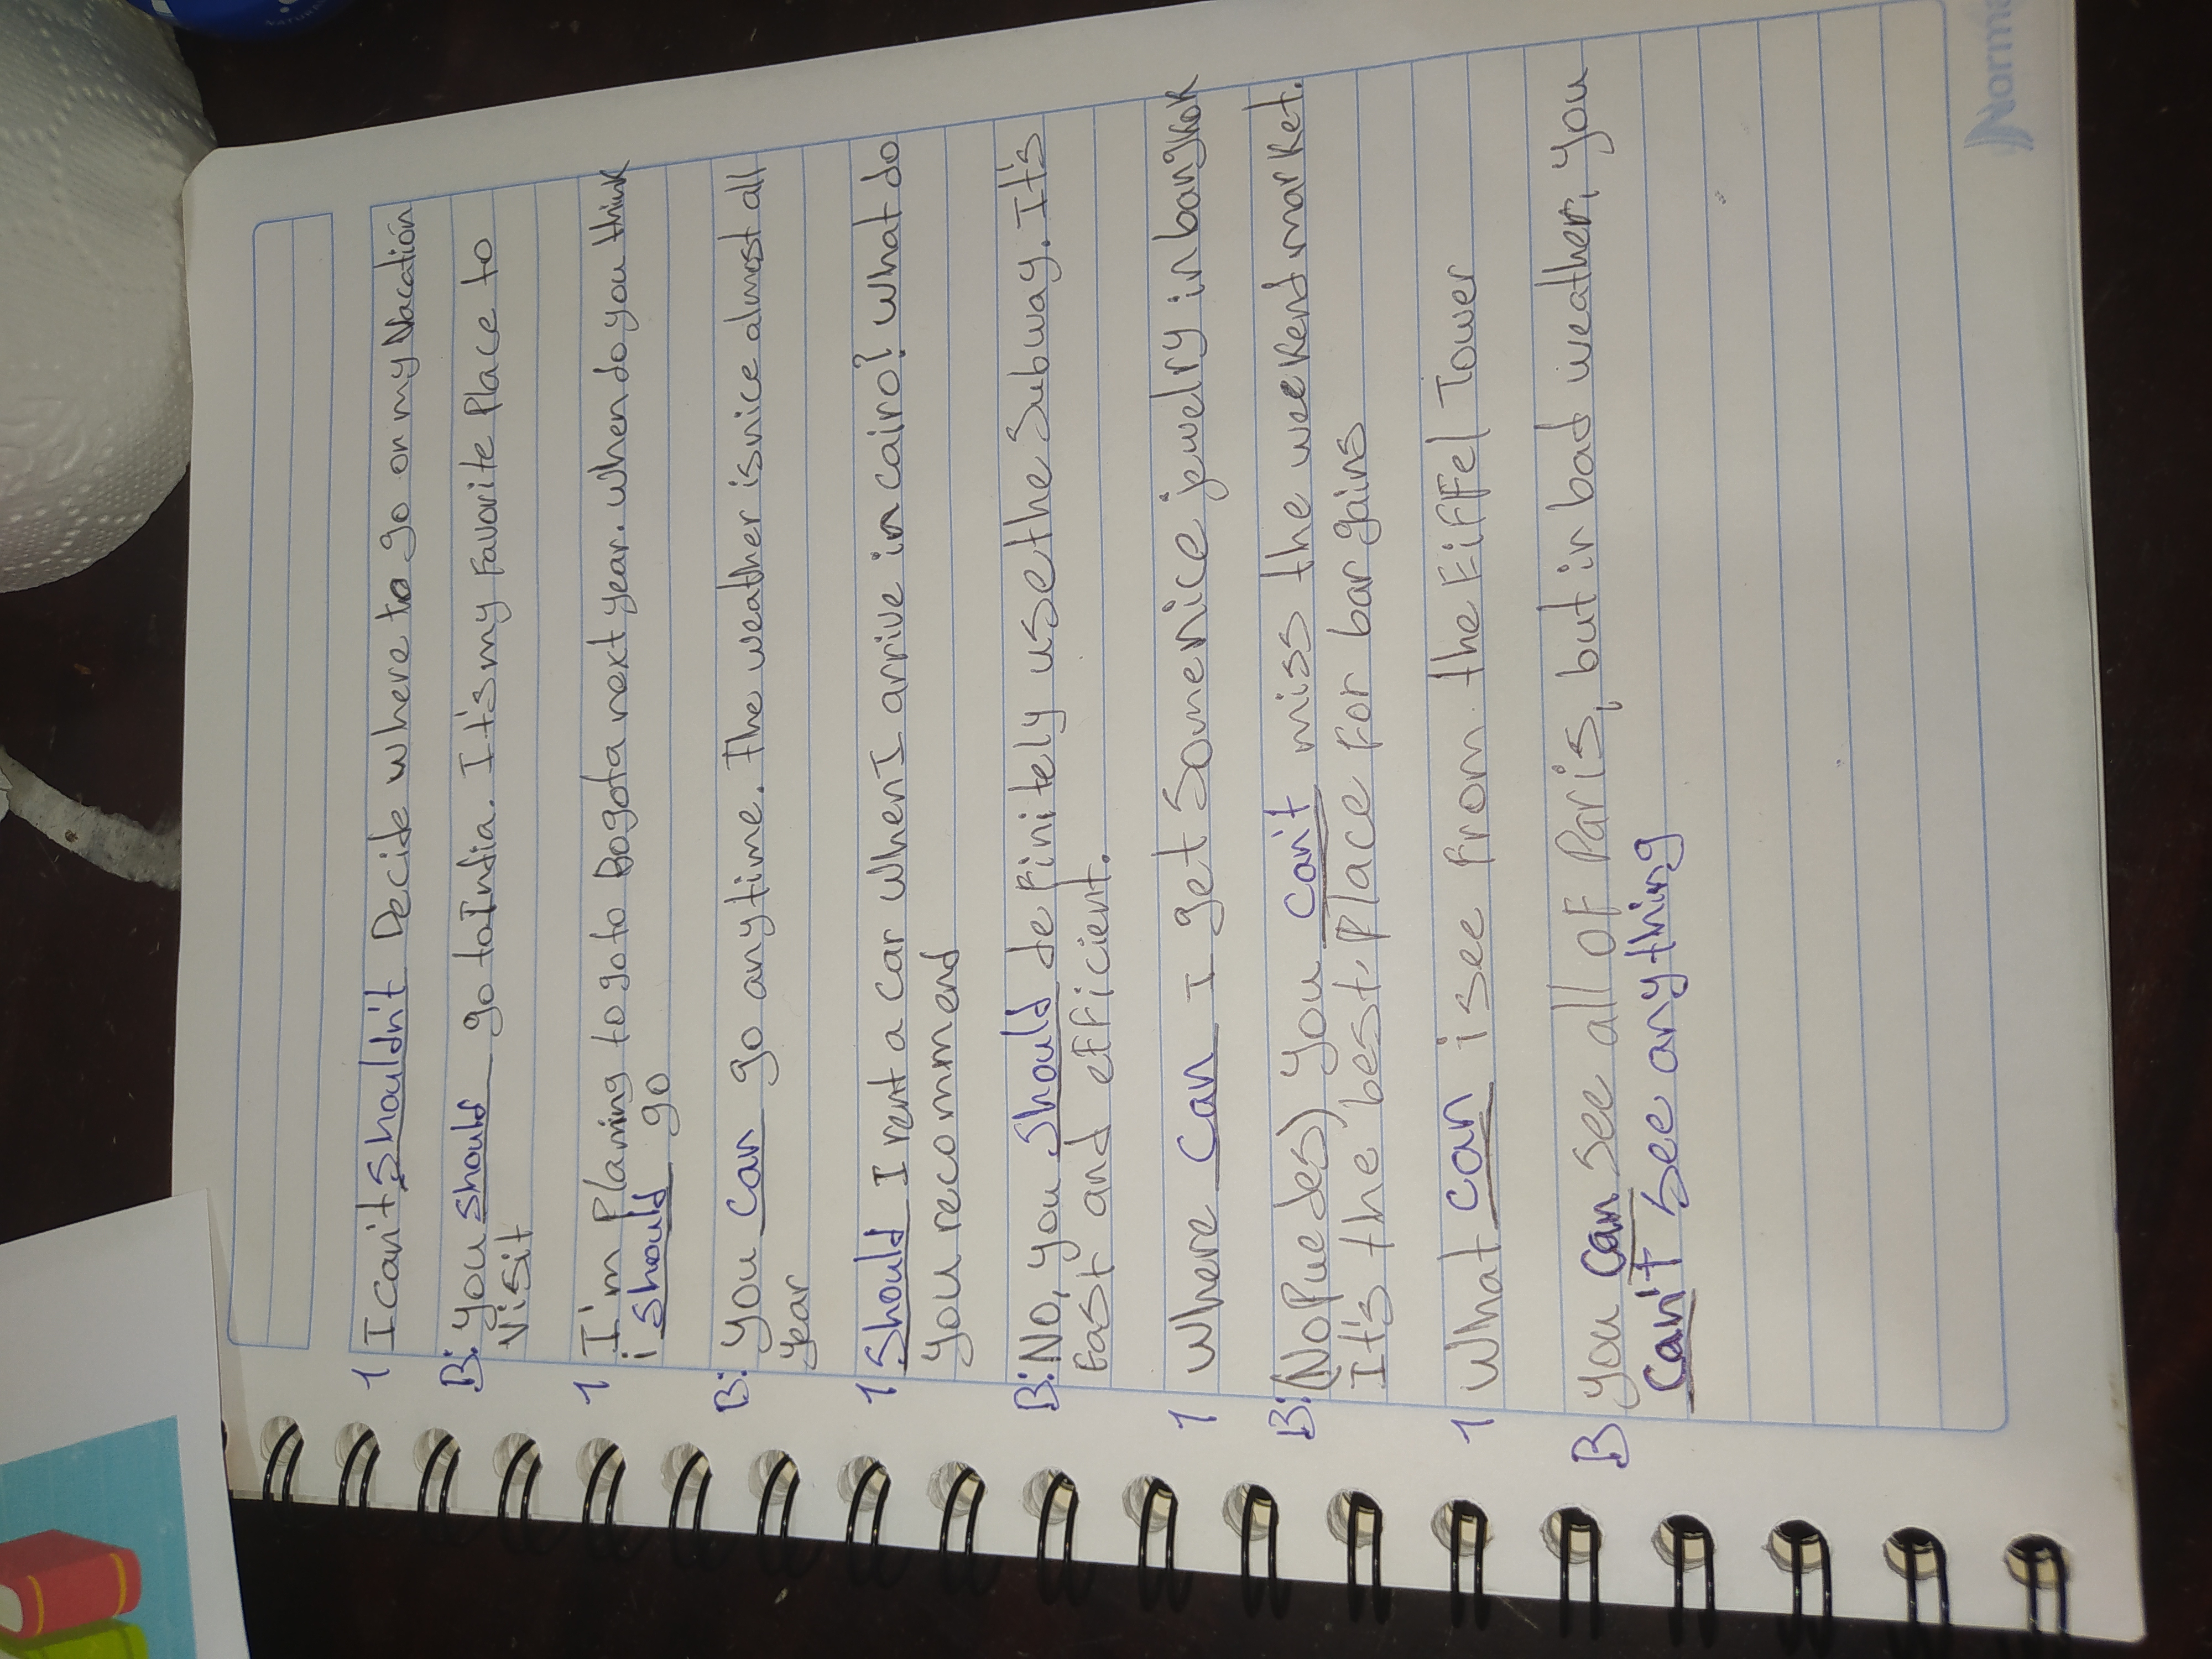 1 I can't shouldn't Decide where to go on my Vacation
B: you should go to India. It's my Favorite Place to
visit
1 I'm Planing to go to Bogota next year. when do you think
i should go
B: you can go any time. The weather is nice almost all
year
1 Should I rent a car when I arrive in cairo? what do
you recommend
B: No, you should definitely use the Subway. It's
East and efficient.
1 where can I get some nice jewelry in bangkok
B: (No Puedes) you can't miss the weekend market.
It's the best. Place for bargains
1 what can i see from the Eiffel Tower
B you can see all of Paris, but in bad weather, you
can't see anything
Norma